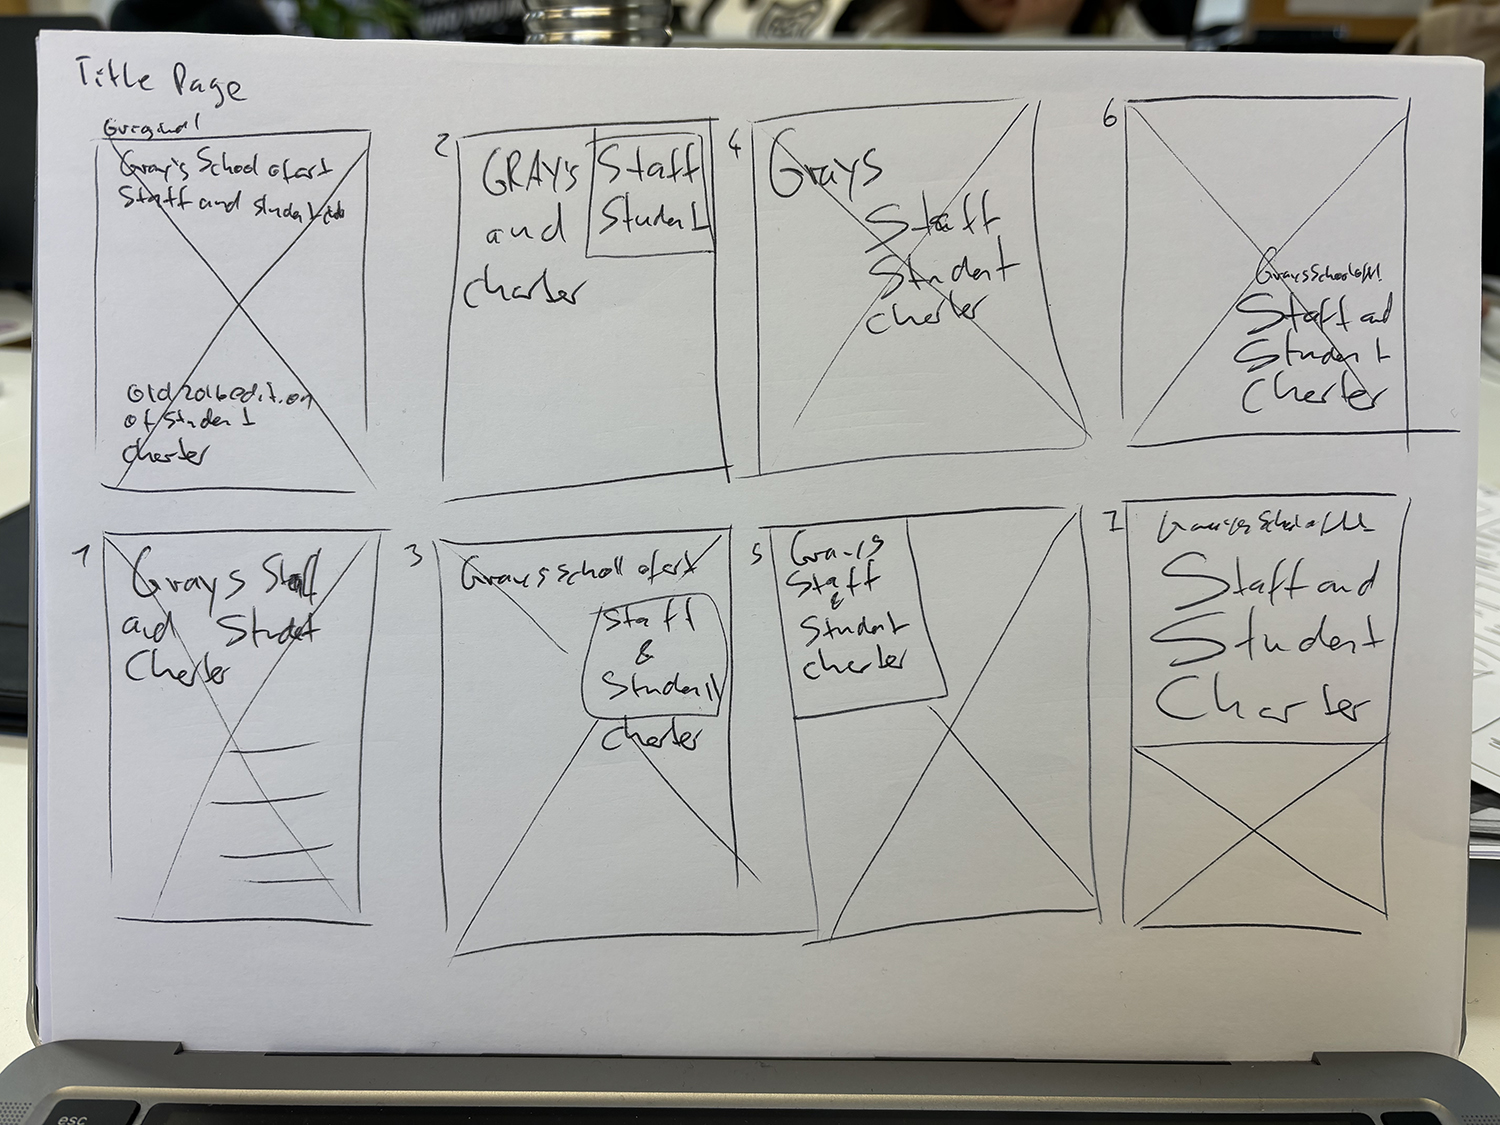 Title Page
Gray's School of art
Staff and student
Old 2016 edition
of Student
Charter
2
GRAY's
and
Charter
Staff
Student
4
Grays
Staff
Student
Charter
6
Grays School of Art
Staff and
Student
Charter
1
Grays Staff
and Student
Charter
3
Grays School of art
Staff
&
Student
Charter
5
Grays
Staff
&
Student
Charter
7
Staff and
Student
Charter
esc